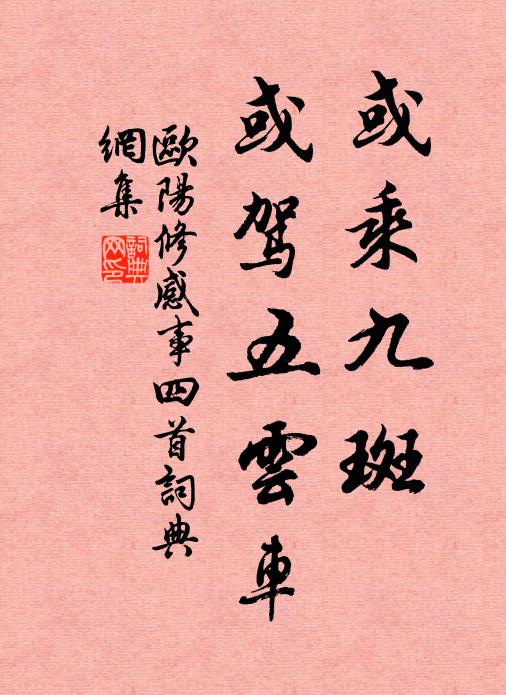 或乘九斑
或駕五雲車
歐陽修感事四首詞典
網集
詞典網印